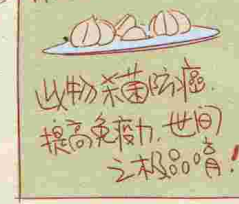 此物杀菌防癌.
提高免疫力.世间
之极品啊!